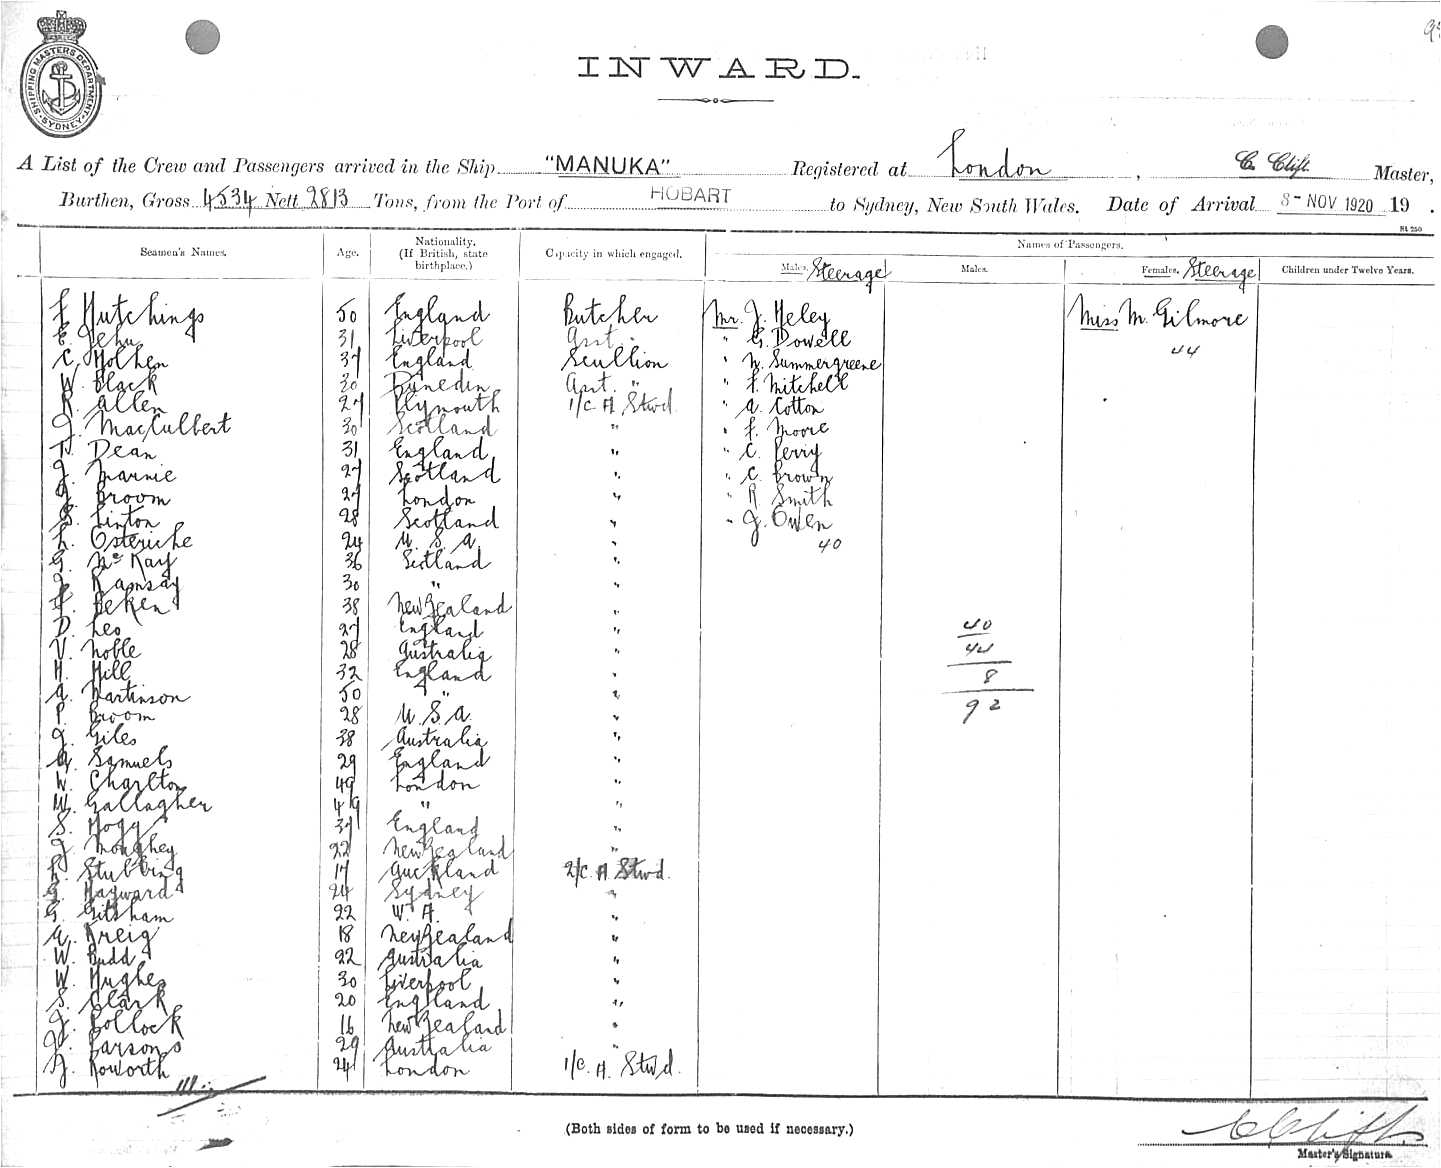 SHIPPING MASTERS DEPARTMENT
SYDNEY
INWARD.
A List of the Crew and Passengers arrived in the Ship "MANUKA" Registered at London, C. Clift Master,
Burthen, Gross 4534 Nett 2813 Tons, from the Port of HOBART to Sydney, New South Wales. Date of Arrival 8- NOV 1920 19 .
St 250
Seamen's Names. Age. Nationality. (If British, state birthplace.) Capacity in which engaged. Names of Passengers.
Males. Steerage Males. Females. Steerage Children under Twelve Years.
F Hutchings 50 England Butcher Mr. J. Heley Miss M. Gilmore
E. Jehu 31 Liverpool Asst. " G. Dowell
C. Holhem 37 England Scullion " W. Summergreene 44
W. Black 30 Dunedin Asst. " " F. Mitchell
R. Allen 27 Plymouth 1/C. A Stwd. " A. Cotton
J. MacCulbert 30 Scotland " " F. Moore
T. Dean 31 England " " C. Perry
J. Marnie 27 Scotland " " C. Brown
J. Broom 27 London " " R Smith
S. Linton 28 Scotland " " J. Owen
L. Osteriche 24 U. S. A. " 40
G. McKay 36 Scotland "
J. Ramsay 30 " "
F. Beken 38 New Zealand "
D. Leo 27 England " 40
V. Noble 28 Australia " 44
H. Hill 32 England " 8
A. Martinson 50 " "
P. Broom 28 U. S. A. " 92
J. Giles 38 Australia "
A. Samuels 29 England "
W. Charlton 49 London "
W. Gallagher 49 " "
S. Hogg 37 England "
J. Moughey 22 New Zealand "
L. Stubbing 17 Auckland 2/C. A Stwd.
G. Hayward 24 Sydney "
G. Gitsham 22 W. A. "
A. Kreig 18 New Zealand "
W. Budd 22 Australia "
W. Hughes 30 Liverpool "
S. Clark 20 England "
J. Pollock 16 New Zealand "
J. Parsons 29 Australia "
J. Roworth 24 London 1/C. A. Stwd.
(Both sides of form to be used if necessary.)
C Clift
Master's Signature.